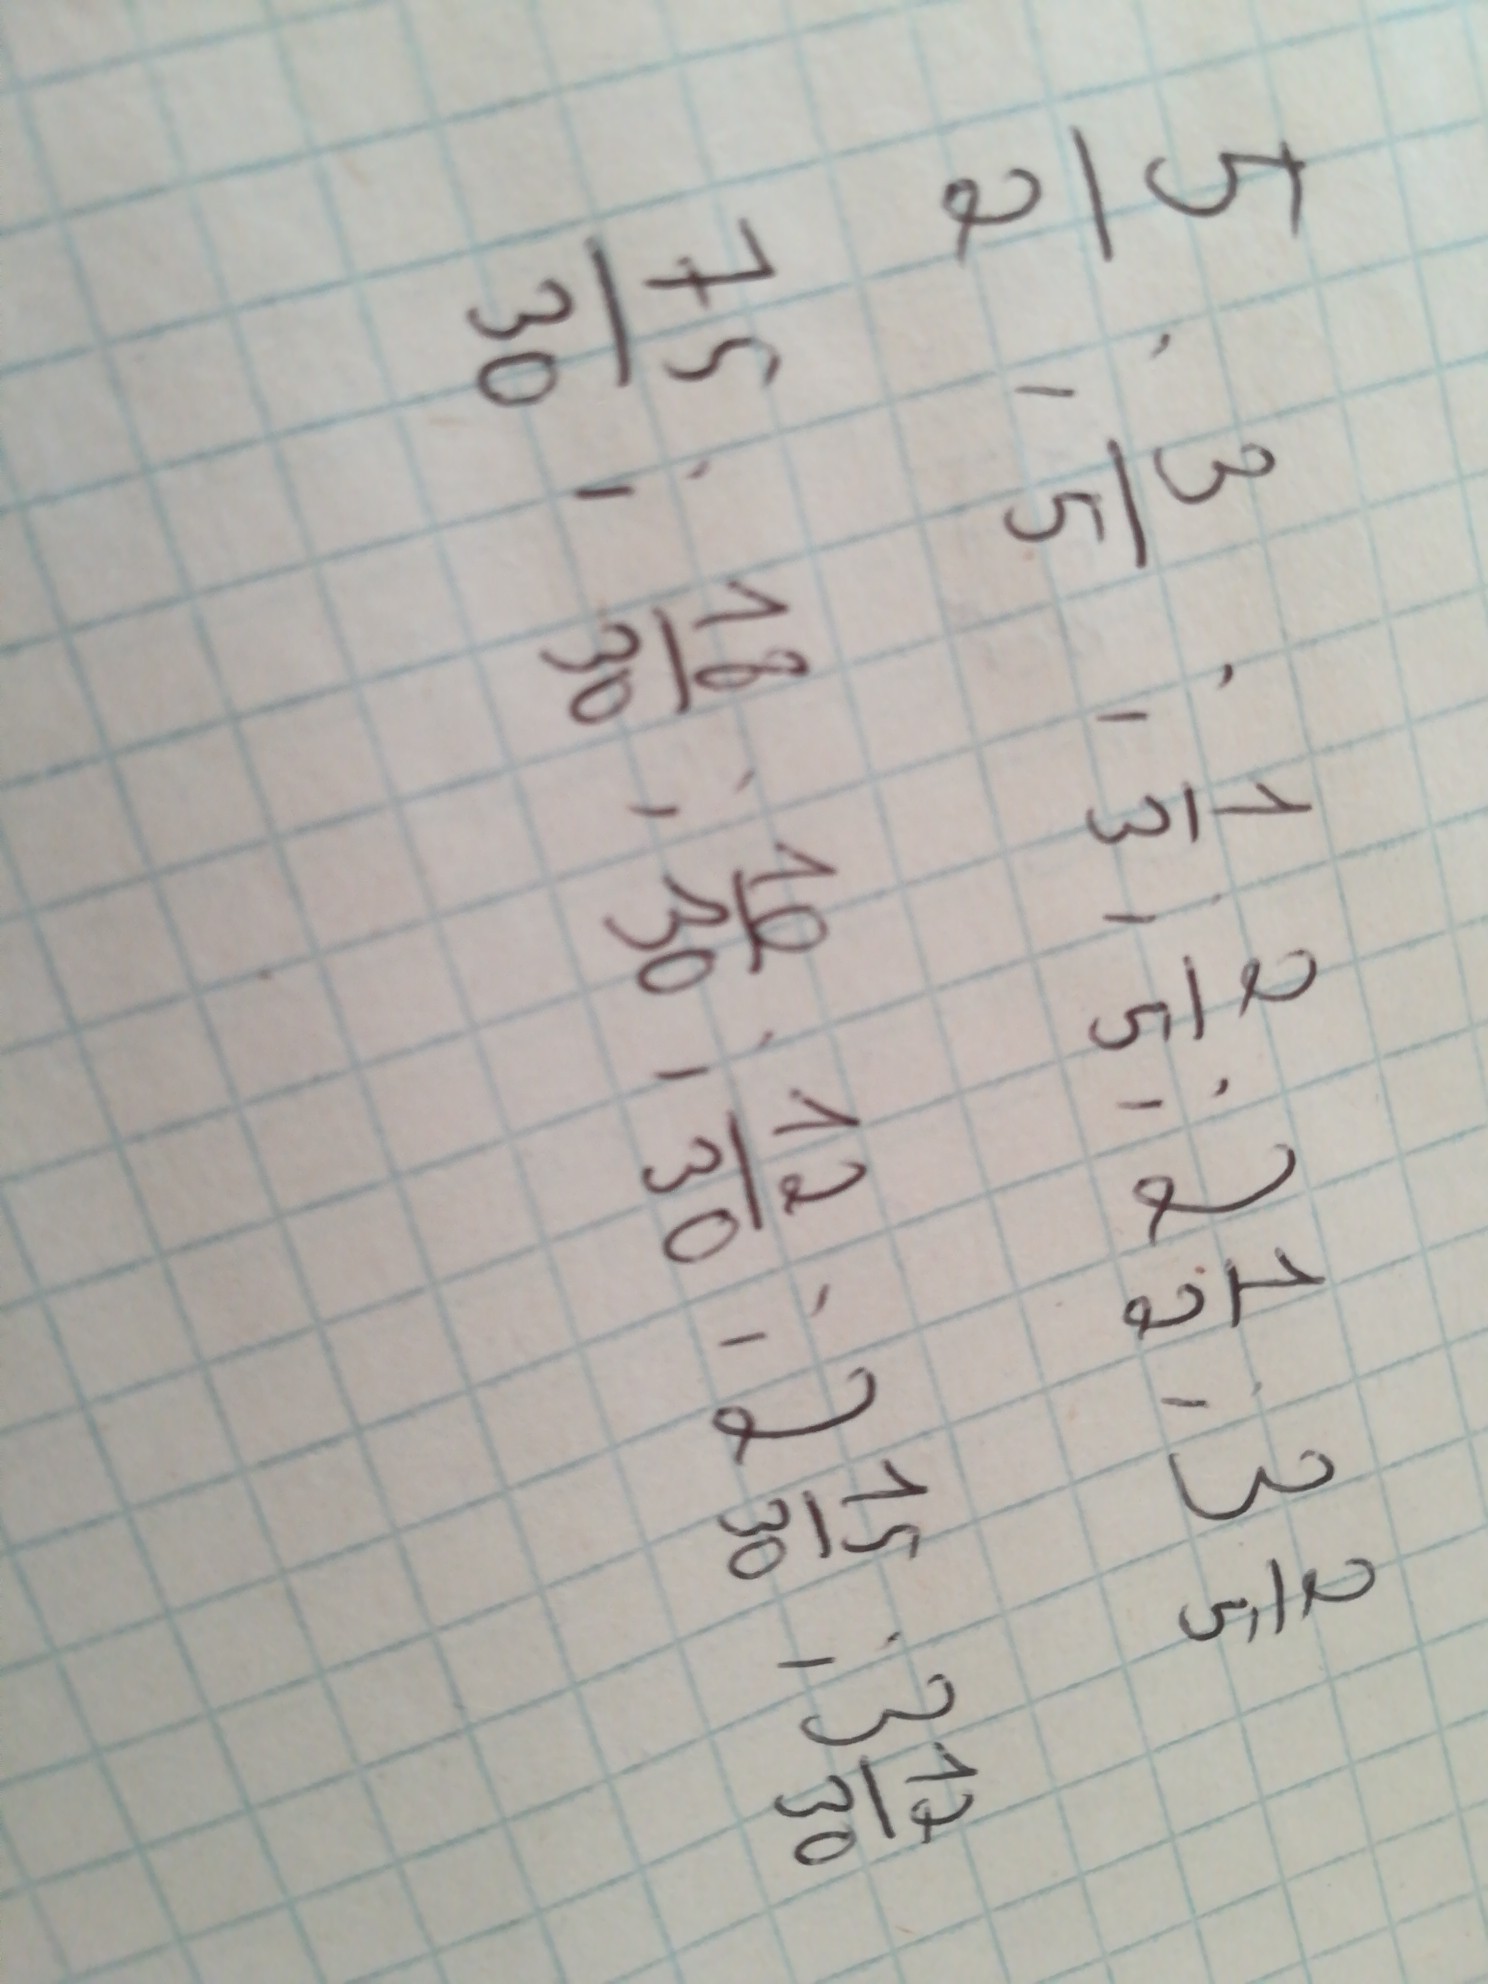 5/2 ; 3/5 ; 1/3 ; 2/5 ; 2 1/2 ; 3 2/5
75/30 ; 18/30 ; 10/30 ; 12/30 ; 2 15/30 ; 3 12/30